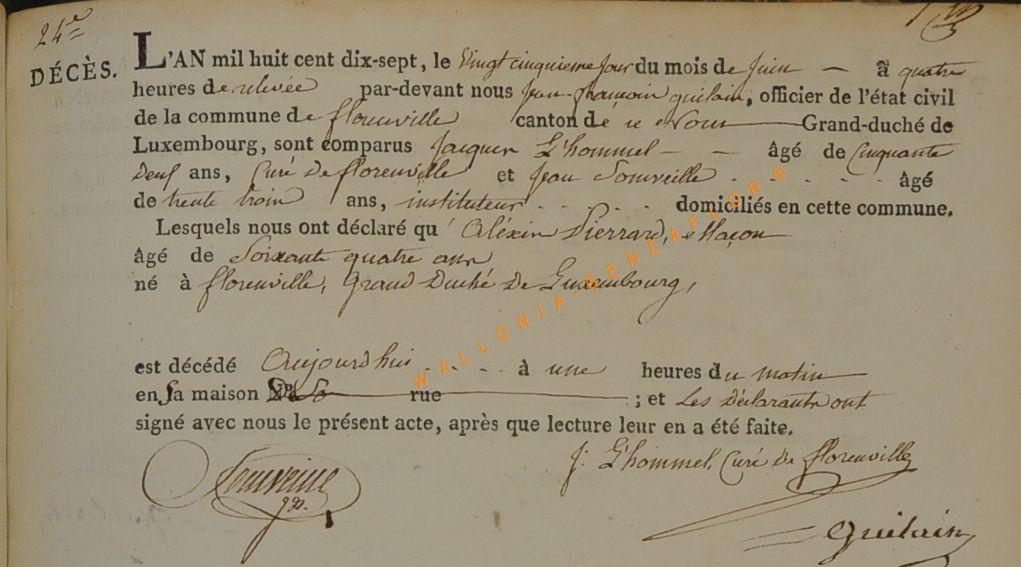 24e
DÉCÈS.
L'AN mil huit cent dix-sept, le Vingt cinquieme jour du mois de Juin — à quatre
heures de relevée par-devant nous Jean-françois guilain, officier de l'état civil
de la commune de florenville canton de ce Nom Grand-duché de
Luxembourg, sont comparus Jacques L'hommel — — âgé de Cinquante
Deux ans, Curé De florenville et Jean Somveille . . . . . . âgé
de trente trois ans, instituteur . . . . domiciliés en cette commune.
Lesquels nous ont déclaré qu' Aléxis Pierrard, Maçon
âgé de Soixante quatre ans
né à florenville, Grand Duché De Luxembourg,
est décédé Aujourd'hui . . . . à une heures du matin
en Sa maison rue ; et Les Déclarants ont
signé avec nous le présent acte, après que lecture leur en a été faite.
J. L'hommel, Curé De florenville
Somveille
Guilain
WALLONIA-GENEAFLOR®